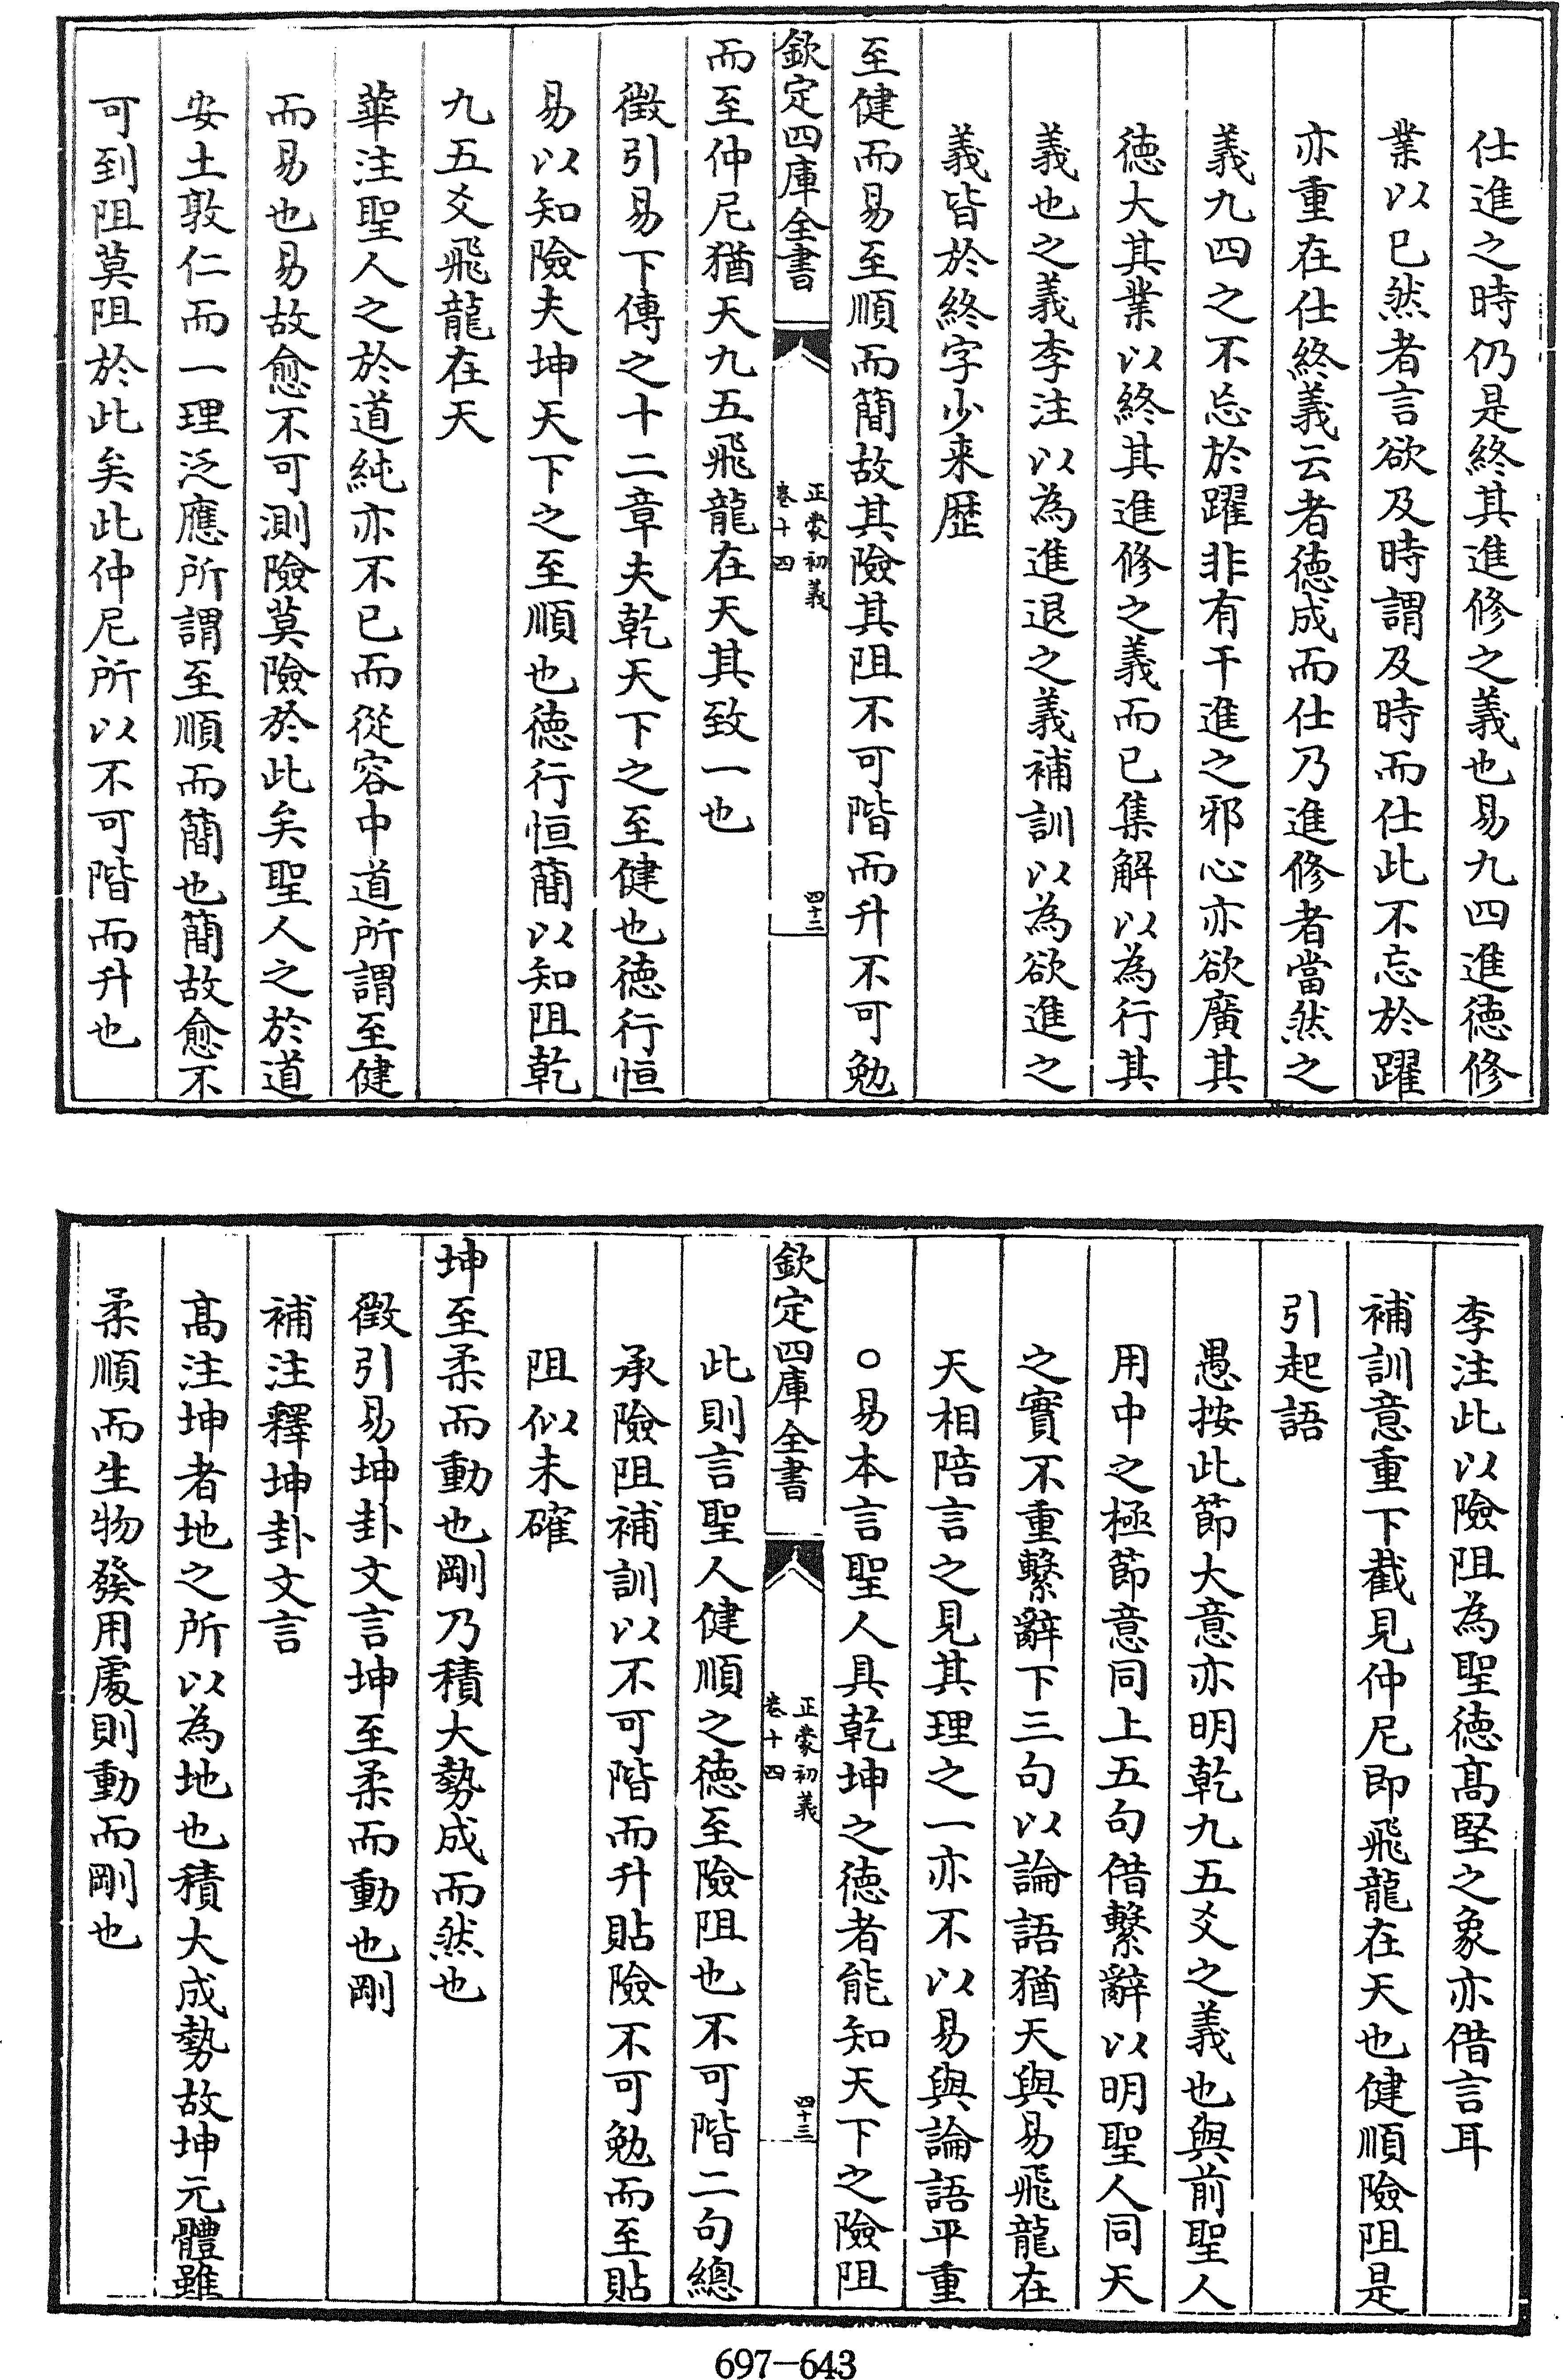 仕進之時仍是終其進修之義也易九四進徳修
業以已然者言欲及時謂及時而仕此不忘於躍
亦重在仕終義云者徳成而仕乃進修者當然之
義九四之不忘於躍非有干進之邪心亦欲廣其
徳大其業以終其進修之義而已集解以為行其
義也之義李注以為進退之義補訓以為欲進之
義皆於終字少来歴
至健而易至順而簡故其險其阻不可階而升不可勉
欽定四庫全書
正蒙初義
卷十四
四十三
而至仲尼猶天九五飛龍在天其致一也
徴引易下傳之十二章夫乾天下之至健也徳行恒
易以知險夫坤天下之至順也徳行恒簡以知阻乾
九五爻飛龍在天
華注聖人之於道純亦不已而從容中道所謂至健
而易也易故愈不可測險莫險於此矣聖人之於道
安土敦仁而一理泛應所謂至順而簡也簡故愈不
可到阻莫阻於此矣此仲尼所以不可階而升也
李注此以險阻為聖徳髙堅之象亦借言耳
補訓意重下截見仲尼即飛龍在天也健順險阻是
引起語
愚按此節大意亦明乾九五爻之義也與前聖人
用中之極節意同上五句借繫辭以明聖人同天
之實不重繫辭下三句以論語猶天與易飛龍在
天相陪言之見其理之一亦不以易與論語平重
○易本言聖人具乾坤之徳者能知天下之險阻
欽定四庫全書
正蒙初義
卷十四
四十三
此則言聖人健順之徳至險阻也不可階二句總
承險阻補訓以不可階而升貼險不可勉而至貼
阻似未確
坤至柔而動也剛乃積大勢成而然也
徴引易坤卦文言坤至柔而動也剛
補注釋坤卦文言
髙注坤者地之所以為地也積大成勢故坤元體雖
柔順而生物發用處則動而剛也
697-643